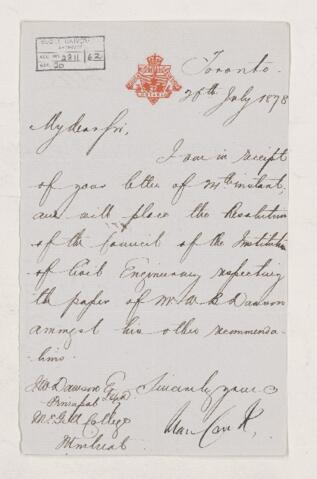 ACC. NO. 2211 62
REF. 20
Toronto.
26th July 1878
My dear Sir,
I am in receipt
of your letter of 24th instant,
and will place the Resolution
of the Council of the Institution
of Civil Engineers respecting
the paper of Mr. W. B. Dawson
amongst his other recommenda-
tions.
Sincerely yours
J.W. Dawson Esq
Principal
McGill College
Montreal